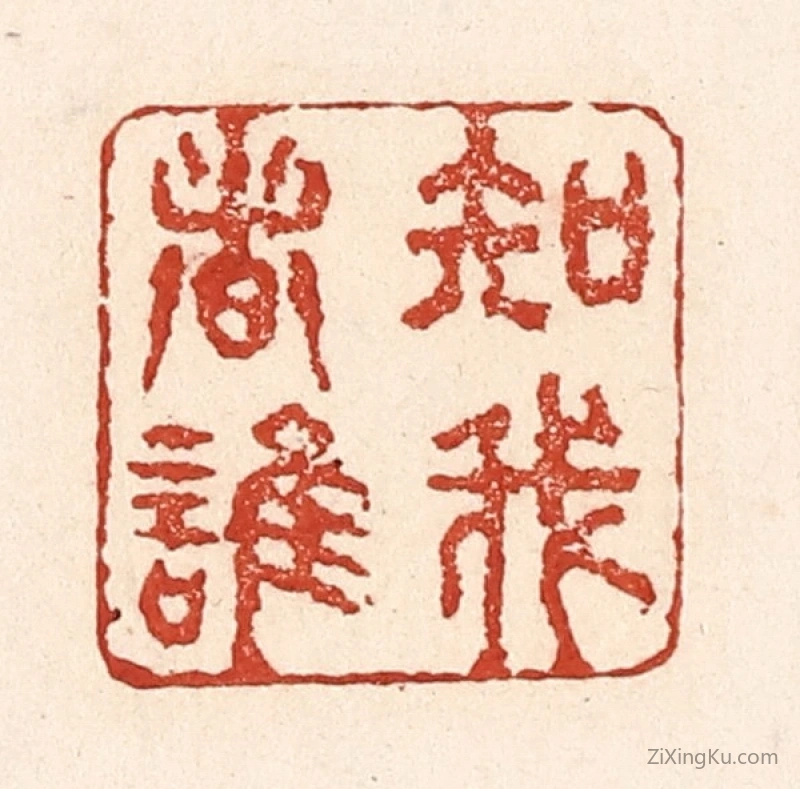 知我
者誰
ZiXingKu.com